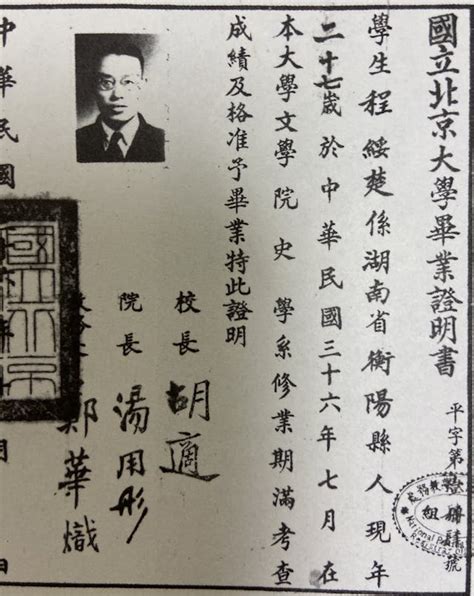 國立北京大學畢業證明書
平字第壹肆號
學生程綏楚係湖南省衡陽縣人現年
二十七歲於中華民國三十六年七月在
本大學文學院史學系修業期滿考查
成績及格准予畢業特此證明
校長 胡適
院長 湯用彤
鄭華熾
中華民國
國立北京
組